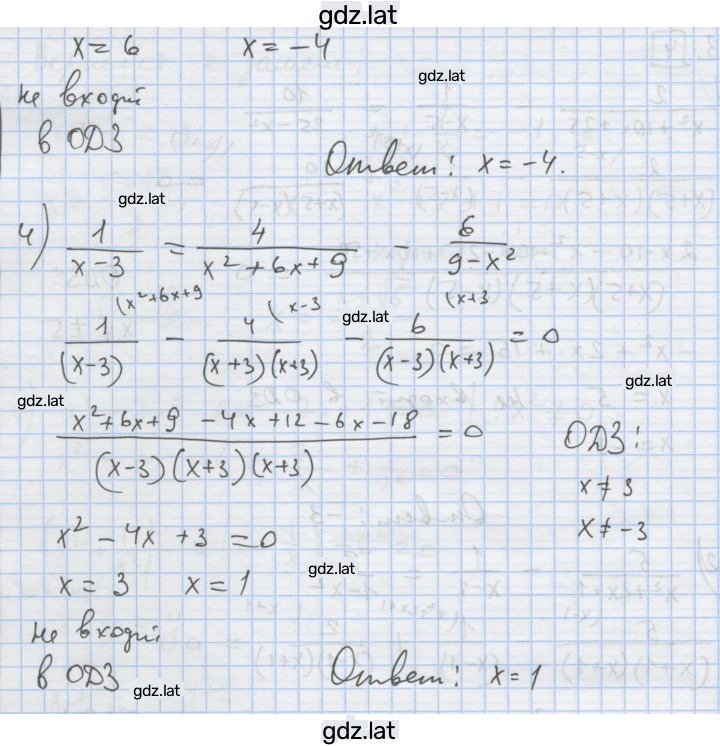 gdz.lat
x = 6 x = -4
gdz.lat
не входит
в ОДЗ
Ответ: x = -4.
gdz.lat
4) 1/(x-3) = 4/(x² + 6x + 9) - 6/(9 - x²)
(x²+6x+9 (x-3 (x+3
gdz.lat
1/(x-3) - 4/((x+3)(x+3)) - 6/((x-3)(x+3)) = 0
gdz.lat
gdz.lat
(x²+6x+9 -4x+12 -6x-18)/((x-3)(x+3)(x+3)) = 0
ОДЗ:
x ≠ 3
x ≠ -3
x² - 4x + 3 = 0
gdz.lat
x = 3 x = 1
не входит
в ОДЗ
gdz.lat
Ответ: x = 1
gdz.lat